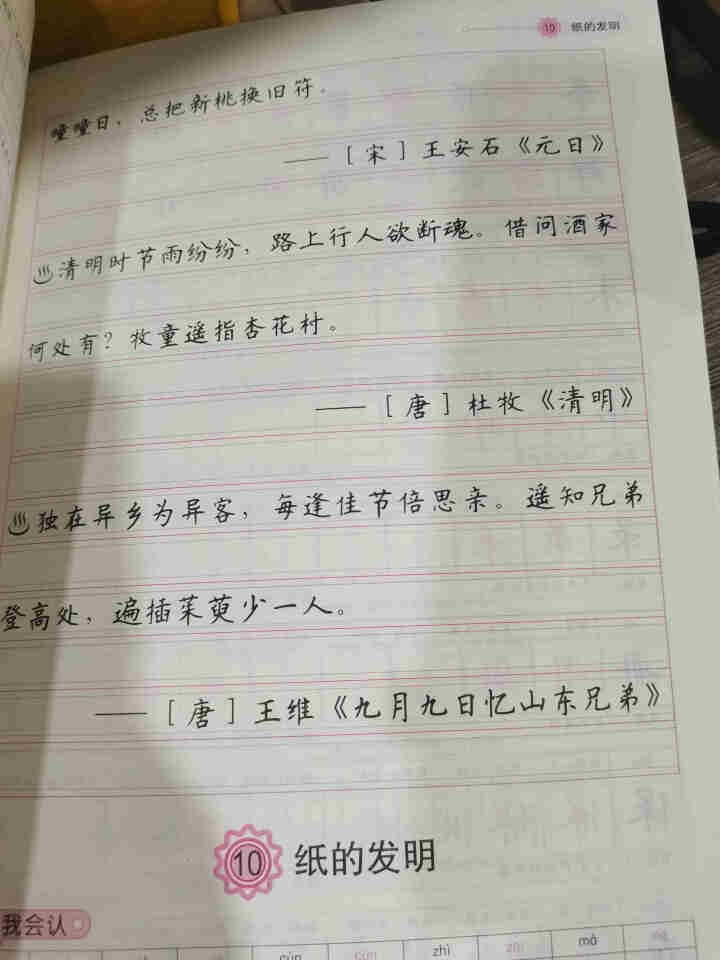 10 纸的发明
曈曈日，总把新桃换旧符。
——［宋］王安石《元日》
清明时节雨纷纷，路上行人欲断魂。借问酒家
何处有？牧童遥指杏花村。
——［唐］杜牧《清明》
独在异乡为异客，每逢佳节倍思亲。遥知兄弟
登高处，遍插茱萸少一人。
——［唐］王维《九月九日忆山东兄弟》
10 纸的发明
我会认
cún cún zhì zhì mó